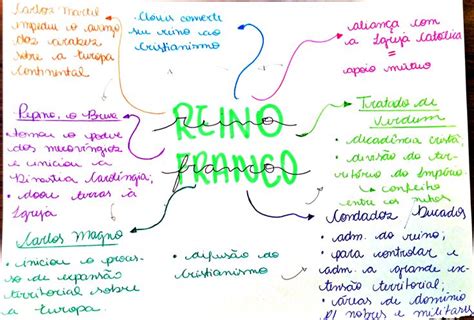 Carlos Martel
impediu o avanço
dos árabes
sobre a Europa
continental
Clóvis converte
seu reino ao
cristianismo
aliança com
a Igreja Católica
=
apoio mútuo
REINO
reino
FRANCO
franco
Pepino, o Breve
tomou o poder
dos merovíngios
e iniciou a
Dinastia Carolíngia;
• doou terras à
Igreja
Tratados de
Verdum
• decadência cristã;
• divisão do ter-
ritório do Império
↳ conflito
entre os netos
Carlos Magno
• iniciou o proces-
so de expansão
territorial sobre
a Europa.
• difusão do
cristianismo
Condados Ducados
• adm. do reino;
• para controlar e
adm. a grande ex-
tensão territorial;
• áreas de domínio
p/ nobres e militares